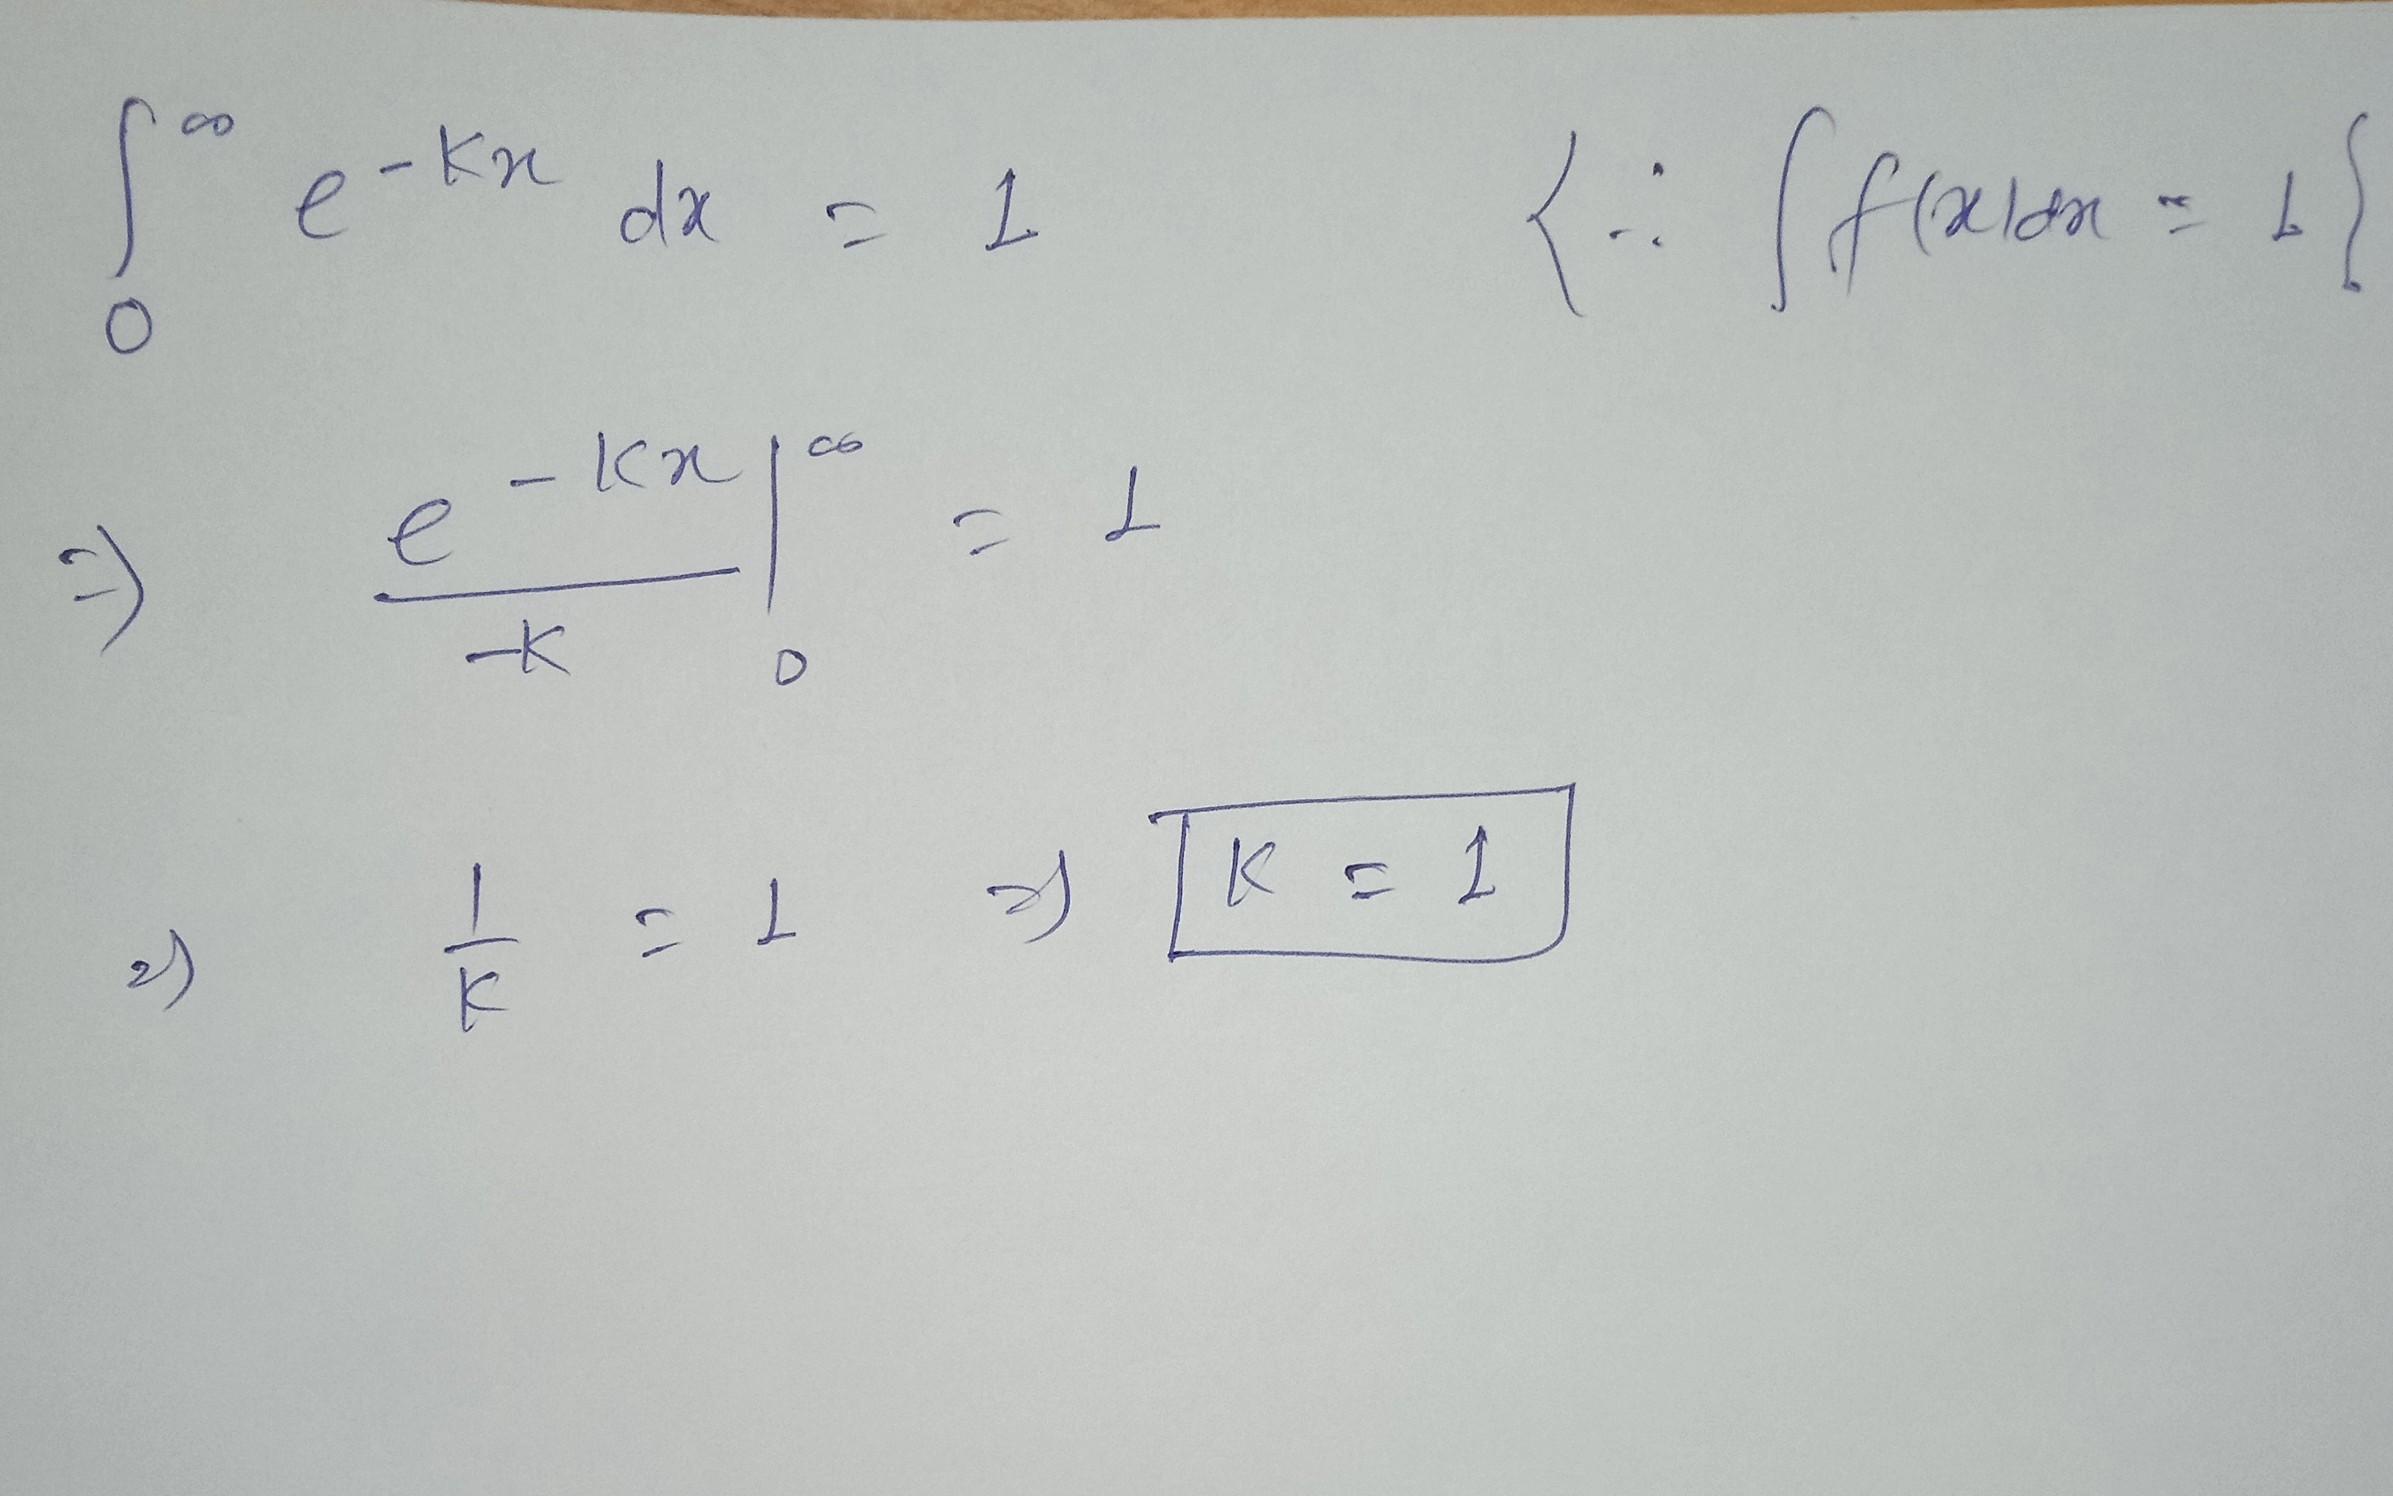 ∫₀^∞ e^{-Kx} dx = 1 {∵ ∫f(x)dx = 1}
⇒ e^{-Kx}/-K |₀^∞ = 1
⇒ 1/K = 1 ⇒ K = 1